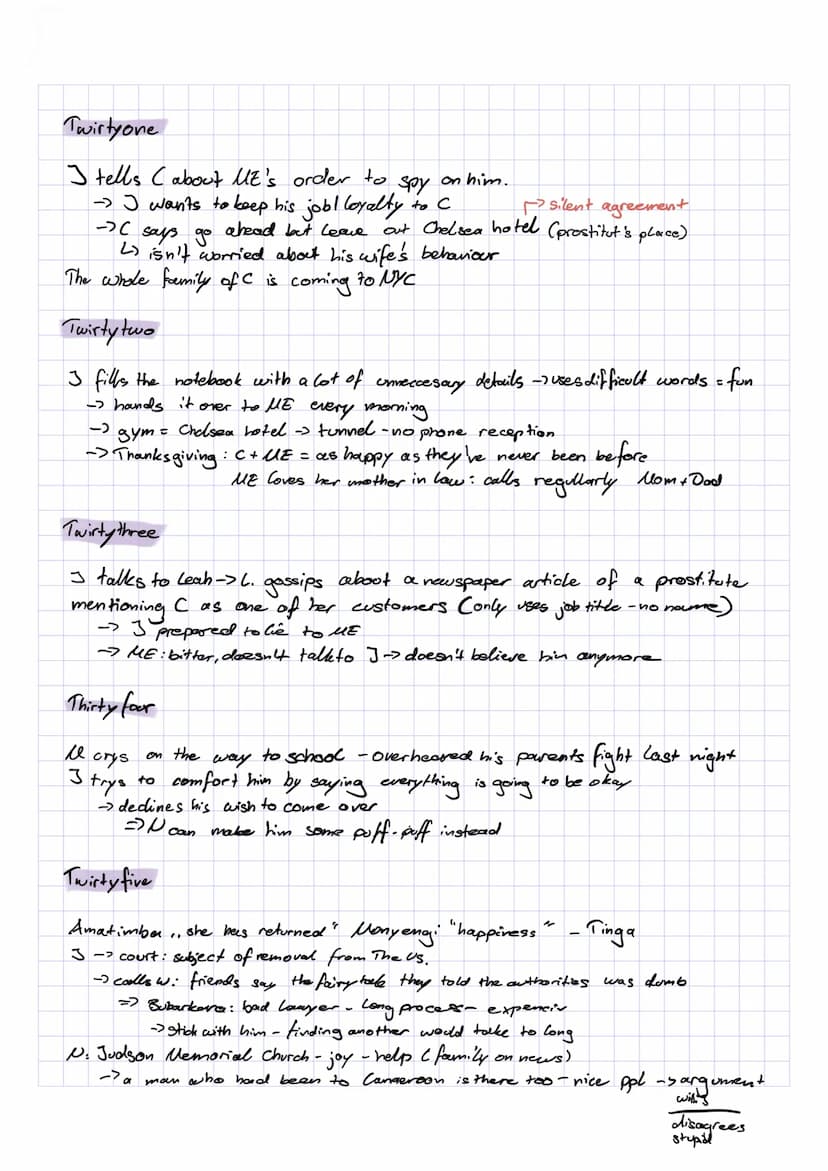 Twirtyone
J tells C about ME's order to spy on him.
-> J wants to keep his job/loyalty to C
↱> silent agreement
-> C says go ahead but leave out Chelsea hotel (prostitut's place)
↳ isn't worried about his wife's behaviour
The whole family of C is coming to NYC
Twirtytwo
J fills the notebook with a lot of unneccesary details -> uses difficult words = fun
-> hands it over to ME every morning
-> gym = Chelsea hotel -> tunnel - no phone reception
-> Thanksgiving : C + ME = as happy as they've never been before
ME loves her mother in law : calls regullarly Mom + Dad
Twirtythree
J talks to Leah -> L. gossips about a newspaper article of a prostitute
mentioning C as one of her customers (only uses job title - no name)
-> J prepared to lie to ME
-> ME : bitter, doesn't talk to J -> doesn't believe him anymore
Thirtyfour
M crys on the way to school - overheared his parents fight last night
J trys to comfort him by saying everything is going to be okay
-> declines his wish to come over
=> N can make him some puff-puff instead
Twirtyfive
Amatimba ,,she has returned" Monyengi "happiness" - Tinga
J -> court : subject of removal from The US.
-> calls W. : friends say the fairytale they told the authorities was dumb
=> Bubarkara : bad lawyer - long process - expenciv
-> stick with him - finding another would take to long
N : Judson Memorial Church - joy - help (family on news)
-> a man who had been to Cameroon is there too - nice ppl -> argument
with J
disagrees
stupid